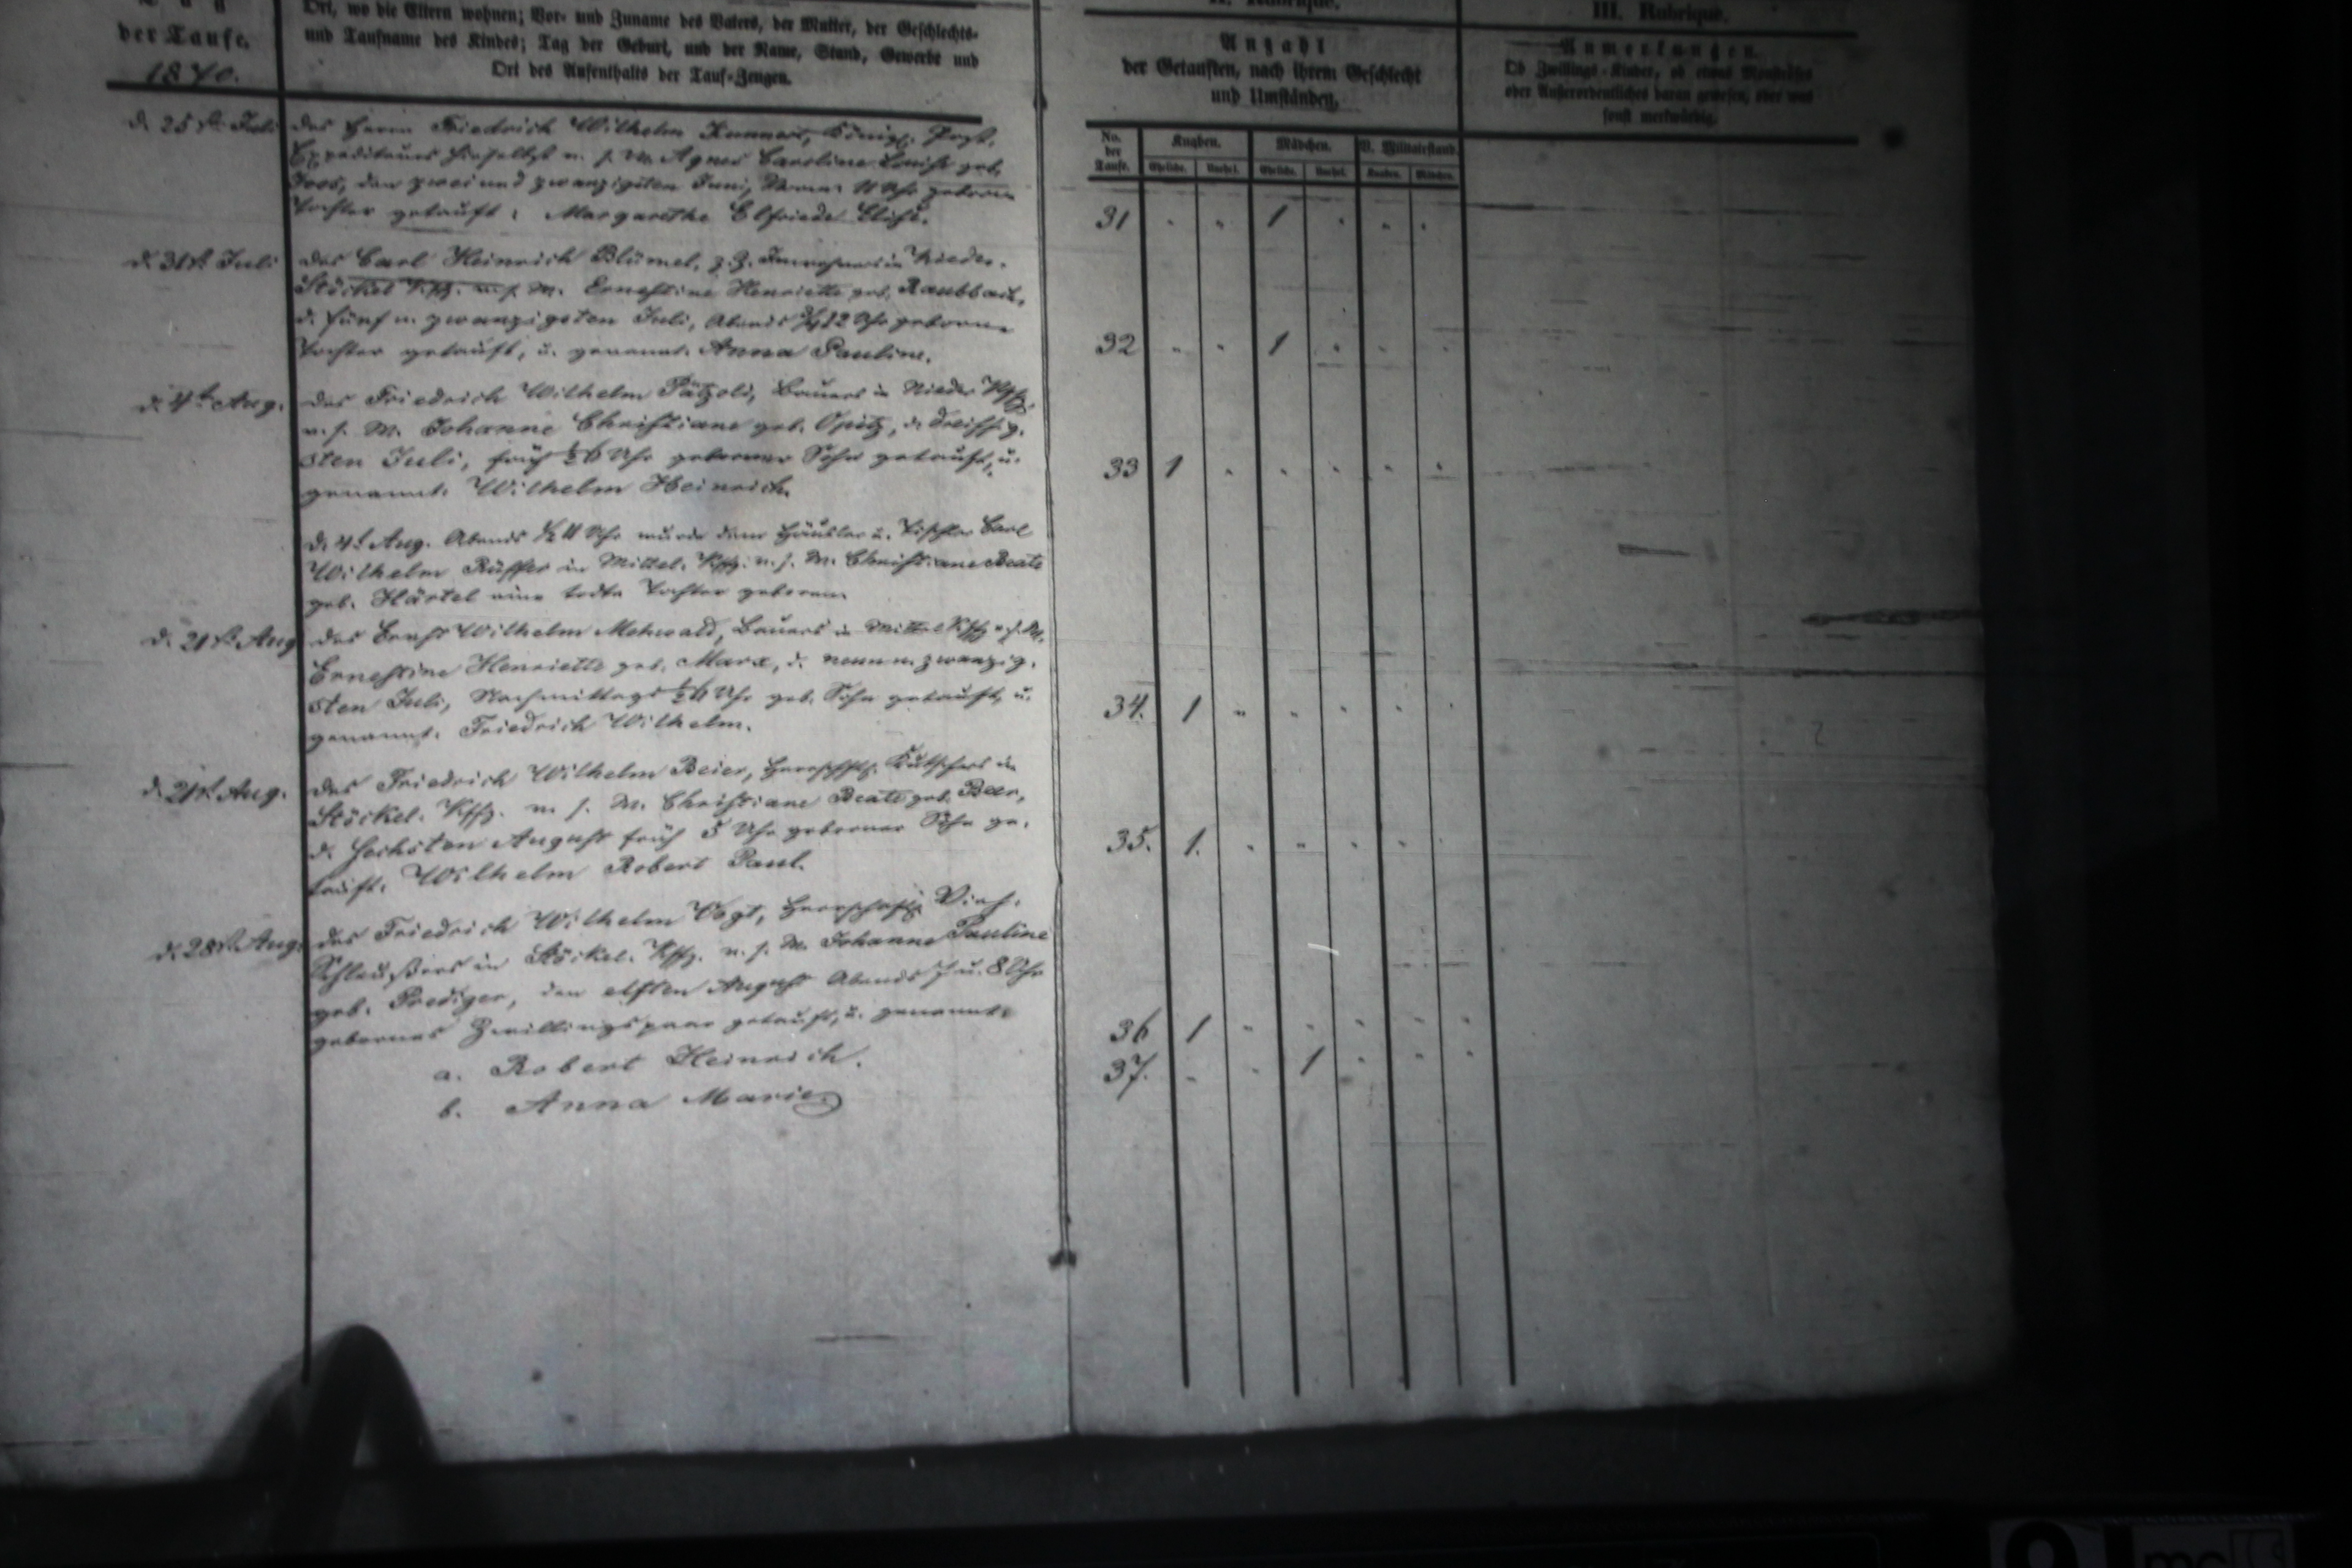 der Taufe.
1870.
Ort, wo die Eltern wohnen; Vor- und Zuname des Vaters, der Mutter, der Geschlechts-
und Taufname des Kindes; Tag der Geburt, und der Name, Stand, Gewerbe und
Ort des Aufenthalts der Tauf-Zeugen.
II. Rubrique.
Anzahl
der Getauften, nach ihrem Geschlecht
und Umständen.
III. Rubrique.
Anmerkungen.
Ob Zwillings-Kinder, ob etwas Monströses
oder Außerordentliches daran gewesen, oder was
sonst merkwürdig.
No. der Taufe.
Knaben.
Mädchen.
V. Militairstand.
Eheliche. Unehel. Eheliche. Unehel. Knaben. Mädchen.
d. 25st. Juli
des Herrn Friedrich Wilhelm Königl. Post.
Expediteurs hieselbst u. s. W. Agnes Caroline Louise geb.
den zwei und zwanzigsten Juni, 11 Uhr geborne
Tochter getauft: Margarethe Elfriede Elise.
31 1
d. 31st. Juli
des Carl Heinrich Blümel, z. Z. Inwohners in Nieder-
Stöckel Kffg. u. s. W. Ernestine Henriette geb.
d. fünf u. zwanzigsten Juli, Abends 3/4 12 Uhr geborne
Tochter getauft, u. genannt. Anna Pauline.
32 1
d. 4t. Aug.
des Friedrich Wilhelm Pätzold, Bauers in Nieder Kffg.
u. s. W. Johanne Christiane geb. Opitz, d. dreissig-
sten Juli, früh 1/2 6 Uhr geborner Sohn getauft, u.
genannt. Wilhelm Heinrich.
33 1
d. 4t. Aug. Abends 1/2 11 Uhr wurde dem Häusler u. Tischler Carl
Wilhelm Rüffer in Mittel. Kffg. u. s. W. Christiane Beate
geb. Härtel eine todte Tochter geboren.
d. 21st. Aug
des Ernst Wilhelm Mehwald, Bauers in Mittel Kffg. u. s. W.
Ernestine Henriette geb. Marx, d. neun u. zwanzig-
sten Juli, Nachmittags 1/2 6 Uhr geb. Sohn getauft, u.
genannt. Friedrich Wilhelm.
34. 1
d. 21st. Aug.
des Friedrich Wilhelm Beier, herrschftl. Kutschers in
Stöckel. Kffg. u. s. W. Christiane Beate geb. Beer,
d. sechsten August früh 5 Uhr geborner Sohn ge-
tauft. Wilhelm Robert Paul.
35. 1.
d. 28st. Aug.
des Friedrich Wilhelm Vogt, herrschaftl. Vieh-
Schleußers in Stöckel. Kffg. u. s. W. Johanne Pauline
geb. Prediger, den elften August Abends 7 u. 8 Uhr
gebornes Zwillingspaar getauft, u. genannt:
a. Robert Heinrich.
b. Anna Marie.
36 1
37. 1